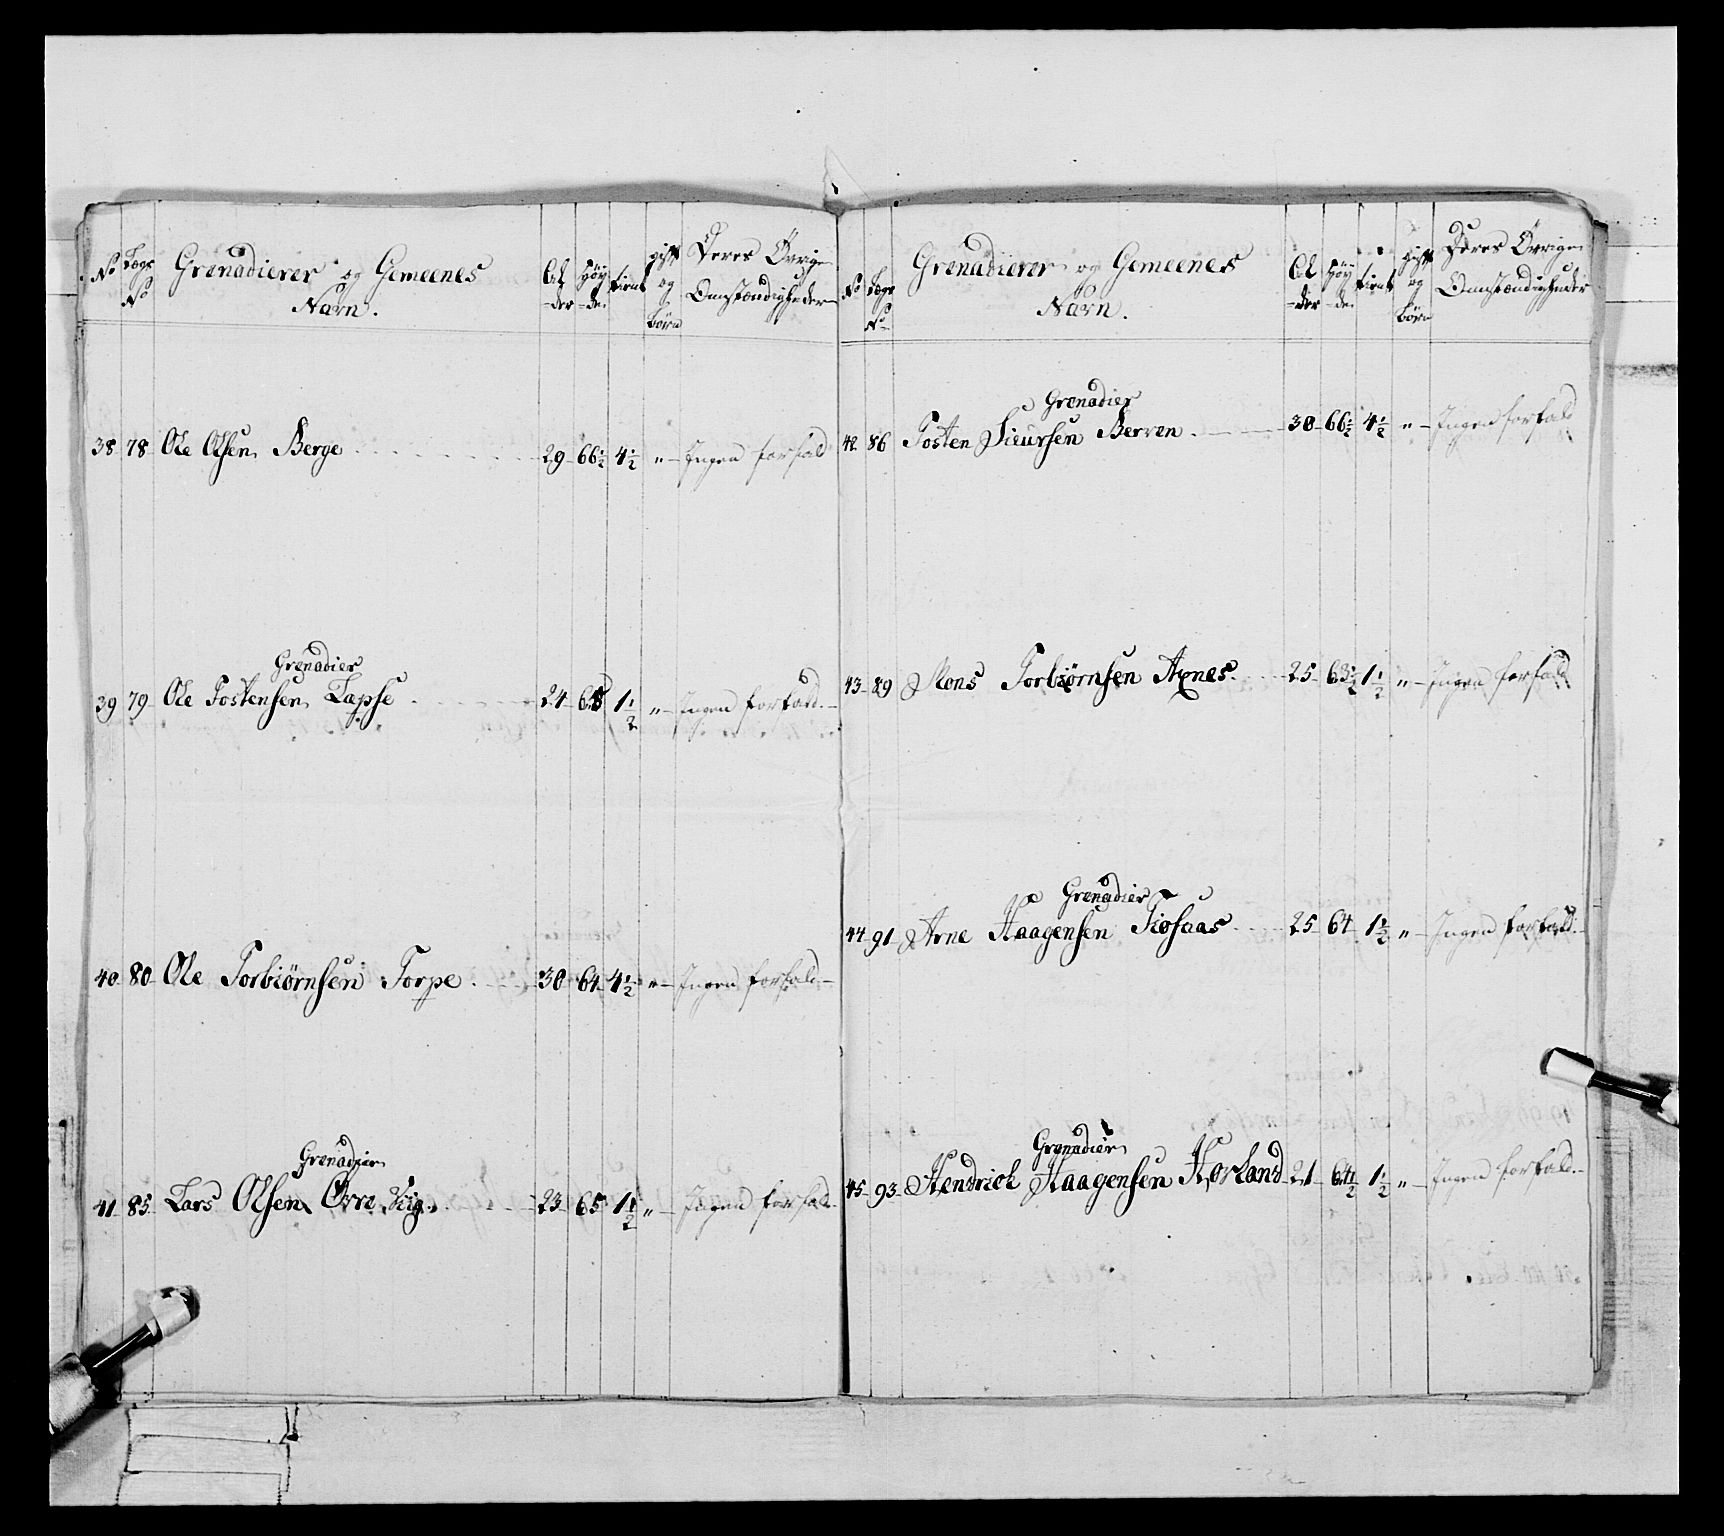 No Lægs No Grenadierer og Gemeenes Navn. Al-der Høy-de tient gift og børn Deres Övrige Omstændigheder
38 78 Ole Olsen Berge 29 66½ 4½ „ Ingen forfald
Grenadier
39 79 Ole Tostensen Tapse 24 65 1½ „ Ingen forfald
40 80 Ole Torbiørnsen Torpe 30 64 4½ „ Ingen forfald
Grenadier
41 85 Lars Olsen Övre 23 65 1½ „ Ingen forfald
No Lægs No Grenadierer og Gemeenes Navn. Al-der Høy-de tient gift og børn Deres Övrige Omstændigheder
Grenadier
42 86 Tosten Sieursen Berven 30 66½ 4½ „ Ingen forfald
43 89 Mons Torbiørnsen Axnes 25 63½ 1½ „ Ingen forfald
Grenadier
44 91 Arne Haagensen Tiosaas 25 64 1½ „ Ingen forfald
Grenadier
45 93 Hendrich Haagensen 21 64½ 1½ „ Ingen forfald